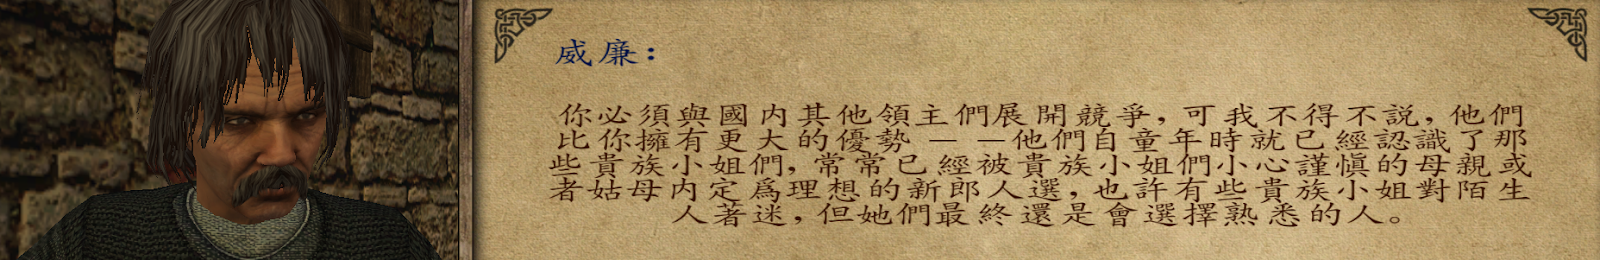 威廉：
你必須與國内其他領主們展開競爭，可我不得不説，他們
比你擁有更大的優勢——他們自童年時就已經認識了那
些貴族小姐們，常常已經被貴族小姐們小心謹慎的母親或
者姑母内定爲理想的新郎人選，也許有些貴族小姐對陌生
人著迷，但她們最終還是會選擇熟悉的人。